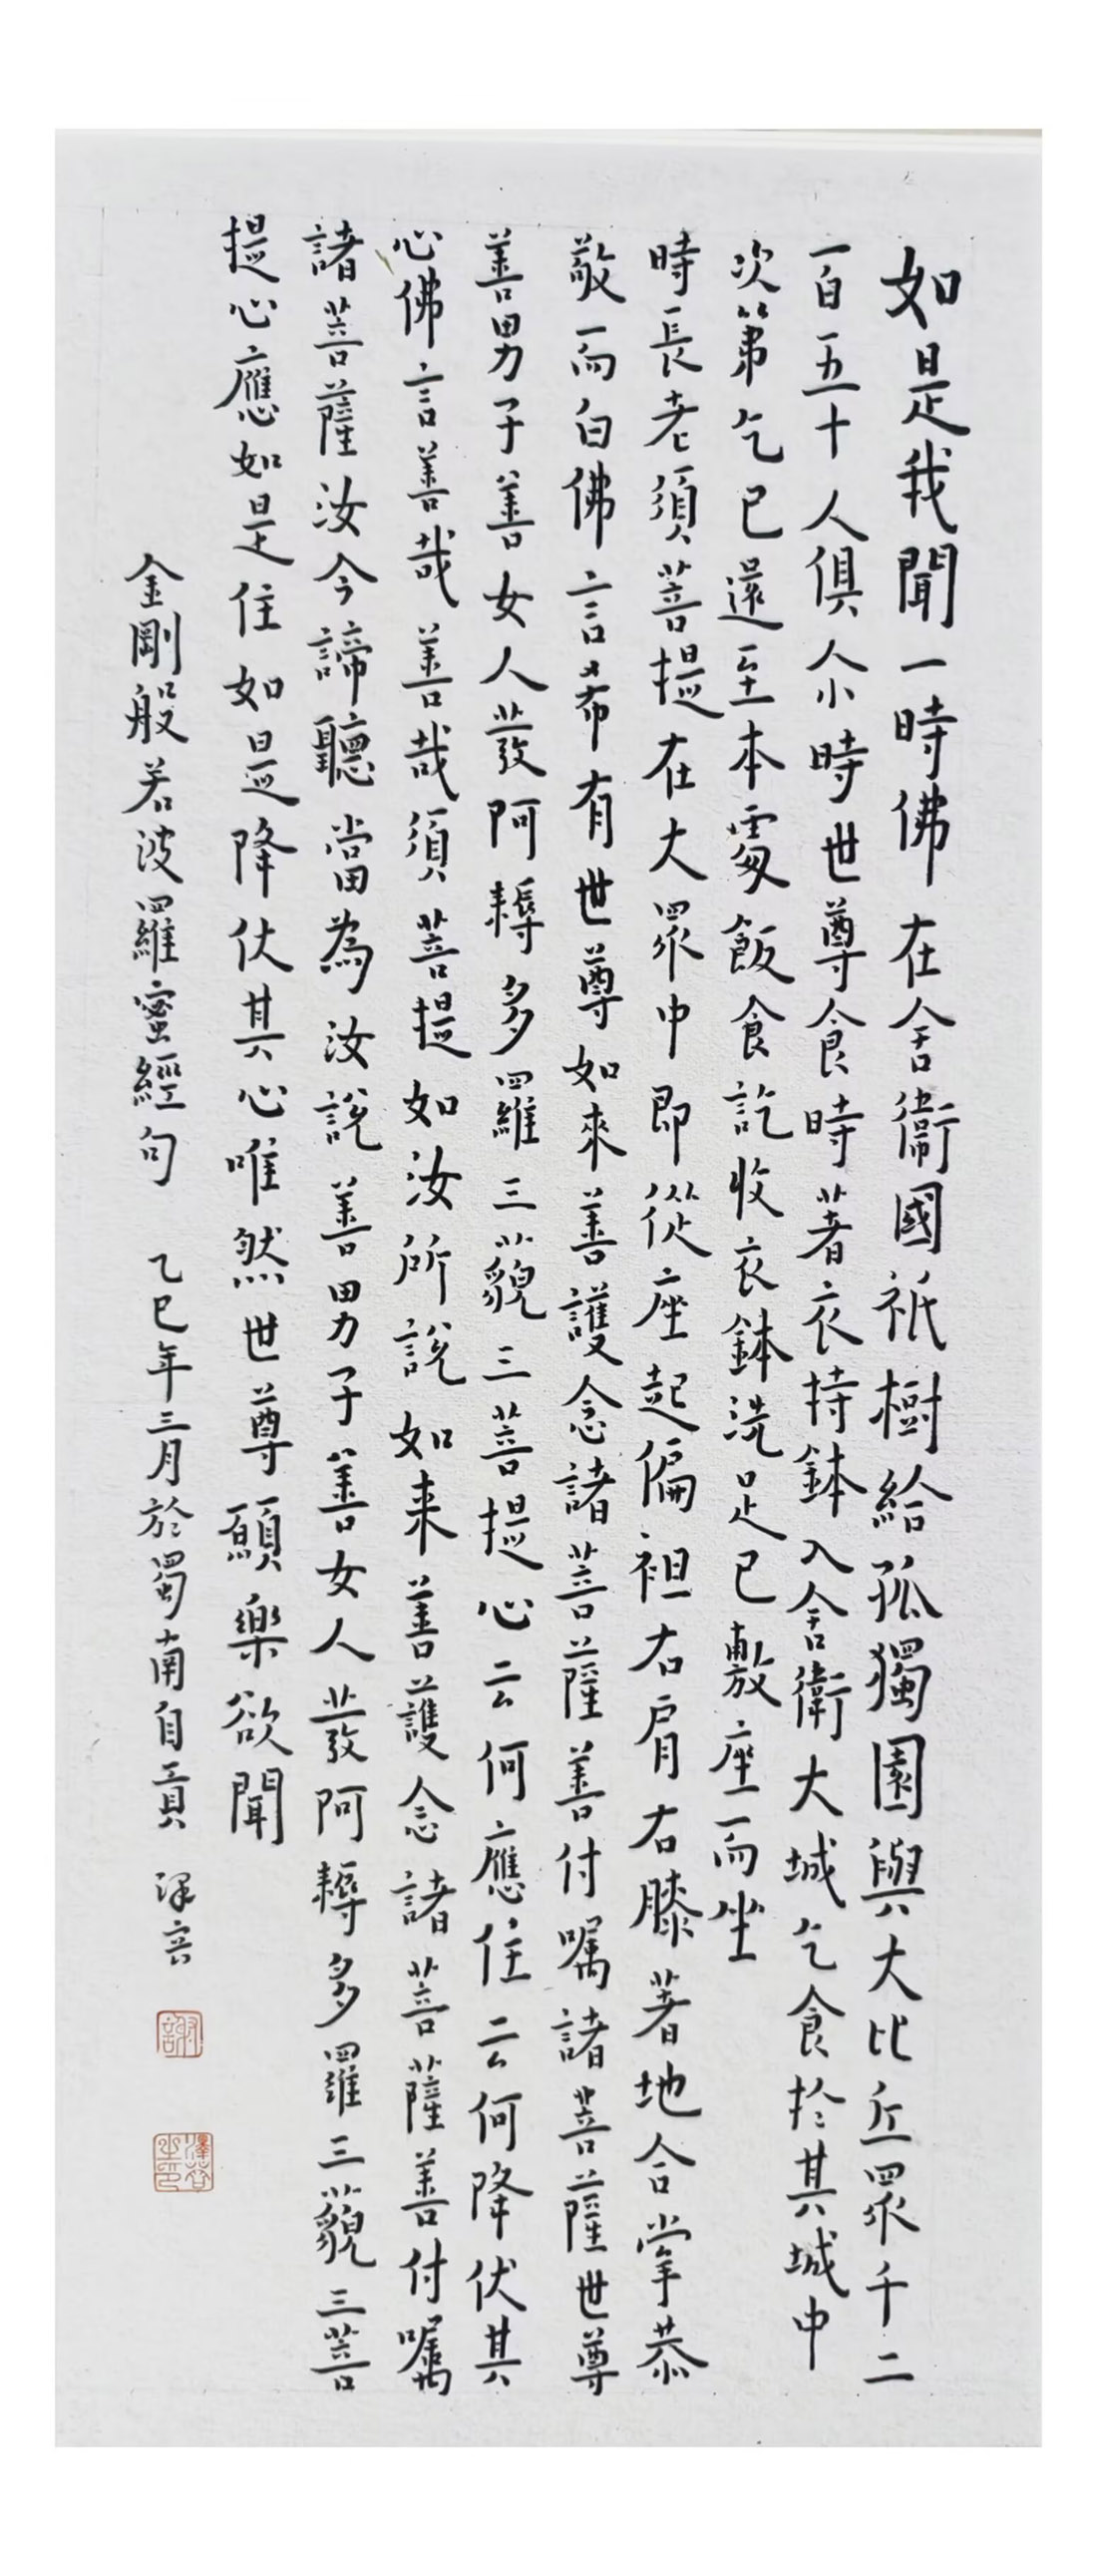 如是我聞一時佛在舍衞國祇樹給孤獨園與大比丘眾千二
百五十人俱尒時世尊食時著衣持鉢入舍衛大城乞食於其城中
次第乞已還至本處飯食訖收衣鉢洗足已敷座而坐
時長老須菩提在大眾中即從座起偏袒右肩右膝著地合掌恭
敬而白佛言希有世尊如來善護念諸菩薩善付嘱諸菩薩世尊
善男子善女人發阿耨多羅三藐三菩提心云何應住云何降伏其
心佛言善哉善哉須菩提如汝所說如来善護念諸菩薩善付嘱
諸菩薩汝今諦聽當為汝說善男子善女人發阿耨多羅三藐三菩
提心應如是住如是降伏其心唯然世尊願樂欲聞
金剛般若波羅蜜經句 乙巳年三月於蜀南自貢
謝